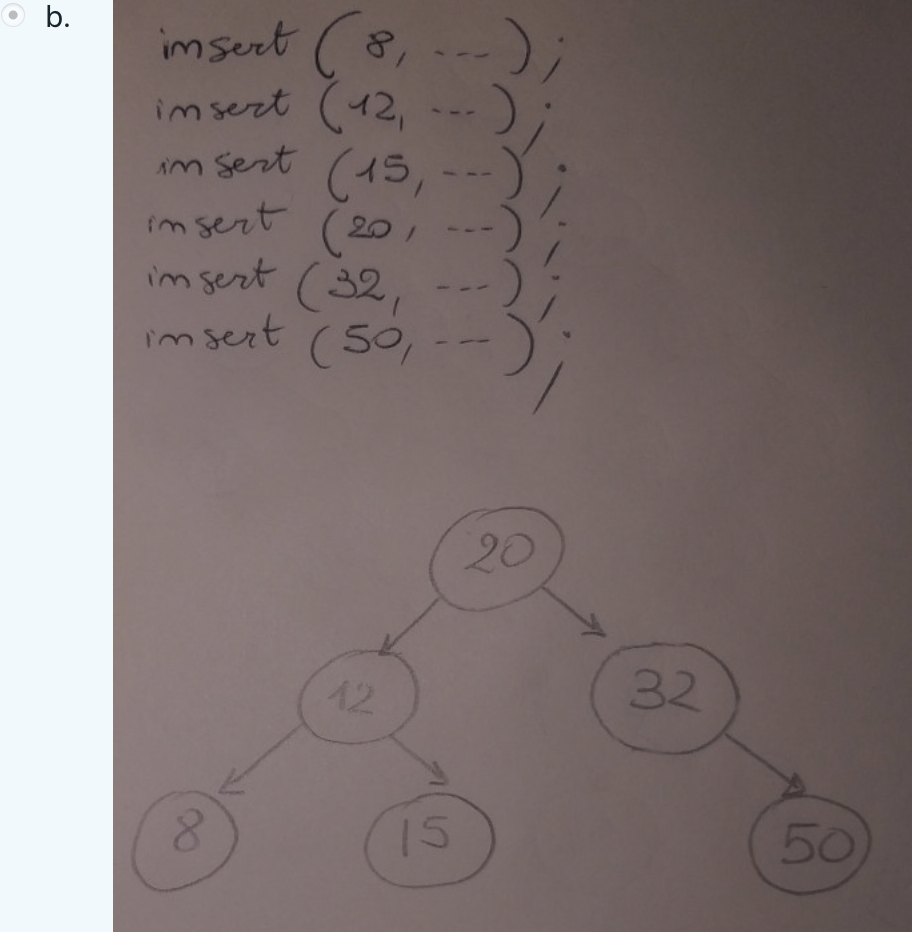 b.
insert (8, ---);
insert (12, ---);
insert (15, ---);
insert (20, ---);
insert (32, ---);
insert (50, ---);
20
12 32
8 15 50